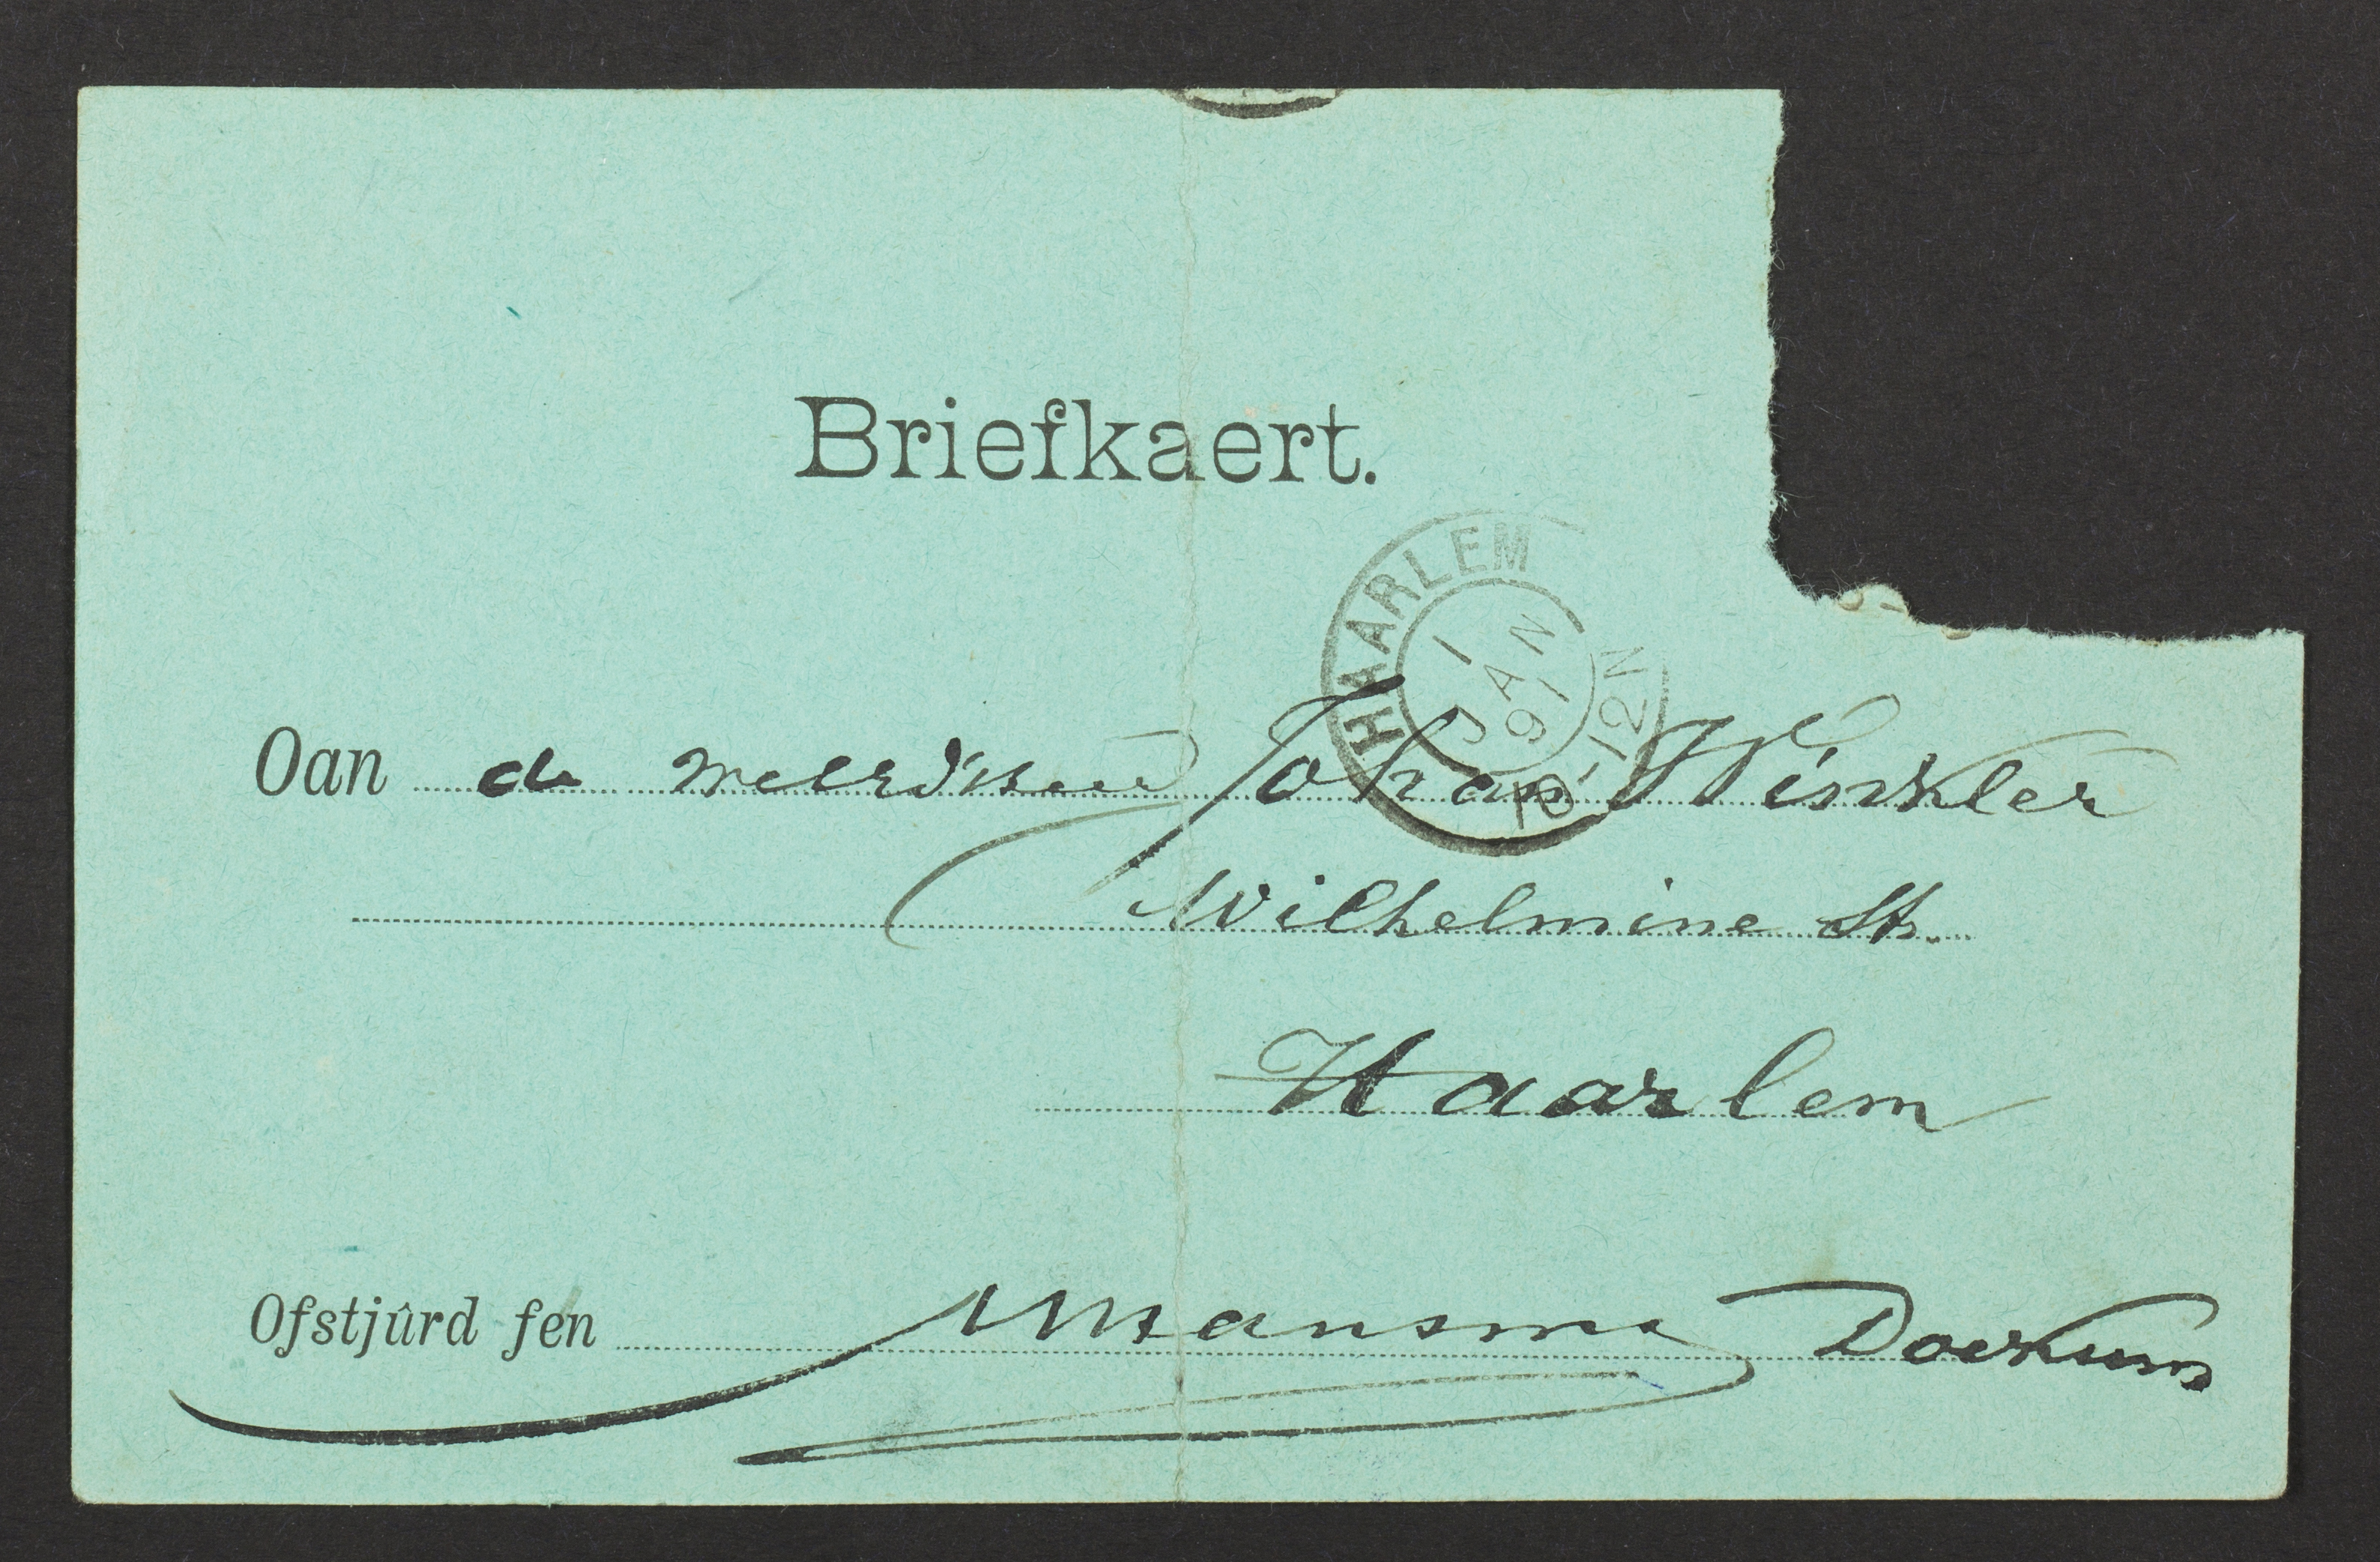 Briefkaert.
HAARLEM
1
JAN
91
10-12N
Oan de Johan Winkler
Wilhelmine Str.
Haarlem
Ofstjûrd fen Mansma Dockum